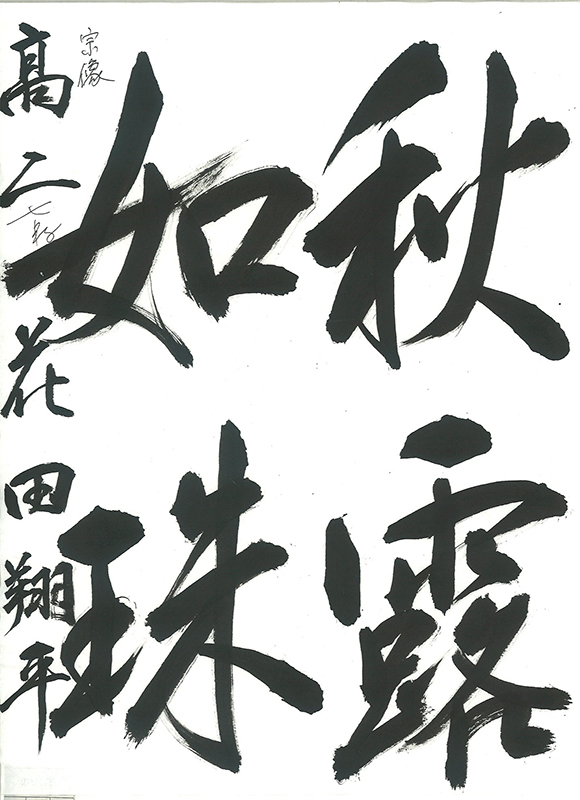 秋露
如珠
宗像
高二 花田翔平